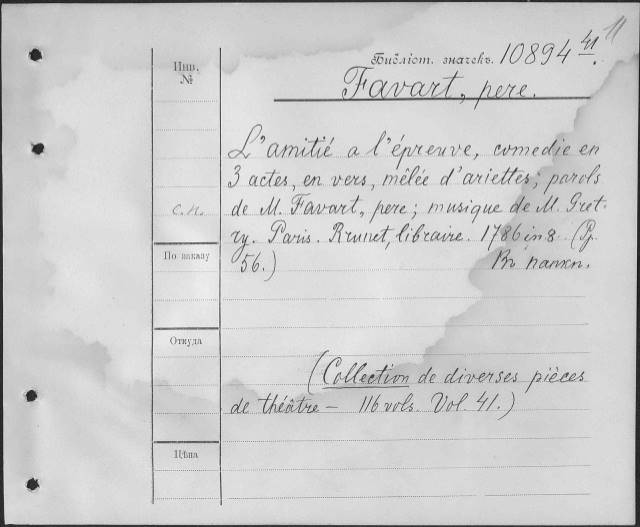 11
Библіот. значекъ. 10894 41.
Инв. №
Favart, pere.
L'amitié a l'épreuve, comedie en
3 actes, en vers, mêlée d'ariettes; parols
с.п. de M. Favart, pere; musique de M. Gret-
ry. Paris. Brunet, libraire. 1786 in 8 (Pp.
По заказу
56.) Въ папкѣ.
Откуда
(Collection de diverses pièces
de théâtre — 116 vols. Vol. 41.)
Цѣна